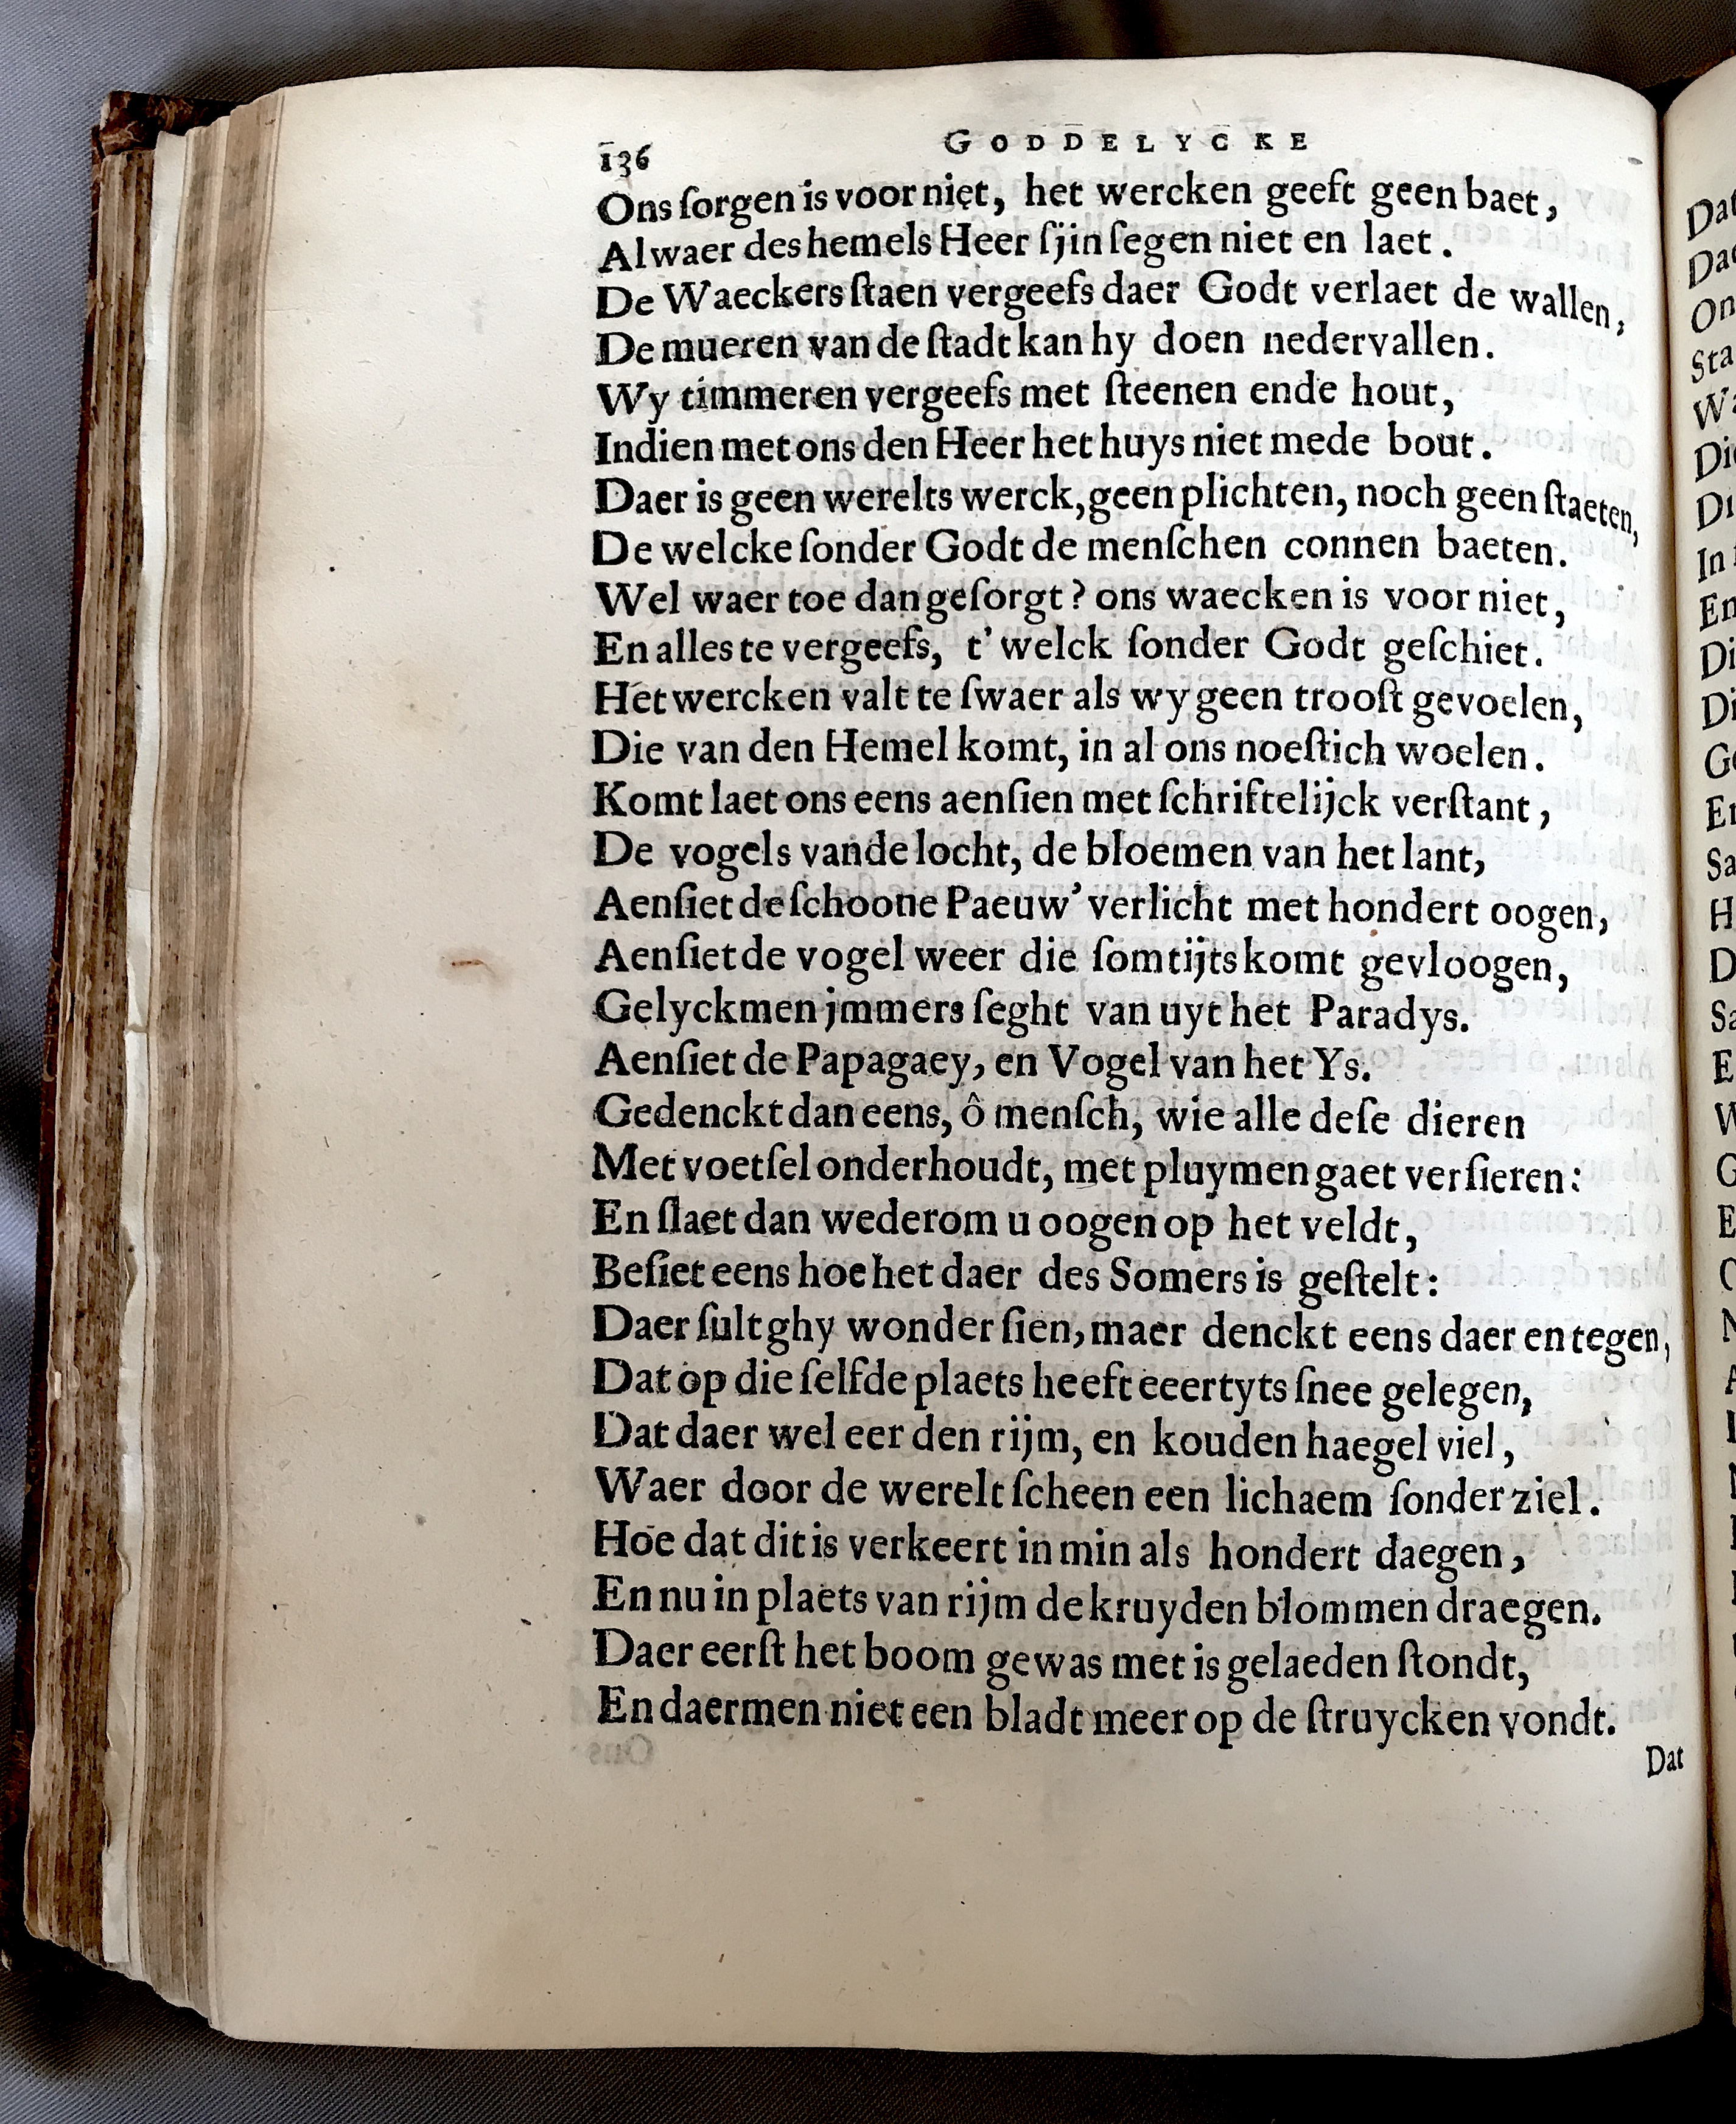 136
GODDELYCKE
Ons ſorgen is voor niet, het wercken geeft geen baet,
Alwaer des hemels Heer ſjin ſegen niet en laet.
De Waeckers ſtaen vergeefs daer Godt verlaet de wallen,
De mueren van de ſtadt kan hy doen nedervallen.
Wy timmeren vergeefs met ſteenen ende hout,
Indien met ons den Heer het huys niet mede bout.
Daer is geen werelts werck, geen plichten, noch geen ſtaeten,
De welcke ſonder Godt de menſchen connen baeten.
Wel waer toe dan geſorgt? ons waecken is voor niet,
En alles te vergeefs, t' welck ſonder Godt geſchiet.
Het wercken valt te ſwaer als wy geen trooſt gevoelen,
Die van den Hemel komt, in al ons noeſtich woelen.
Komt laet ons eens aenſien met ſchriftelijck verſtant,
De vogels vande locht, de bloemen van het lant,
Aenſiet de ſchoone Paeuw' verlicht met hondert oogen,
Aenſiet de vogel weer die ſomtijts komt gevloogen,
Gelyckmen jmmers ſeght van uyt het Paradys.
Aenſiet de Papagaey, en Vogel van het Ys.
Gedenckt dan eens, ô menſch, wie alle deſe dieren
Met voetſel onderhoudt, met pluymen gaet verſieren:
En ſlaet dan wederom u oogen op het veldt,
Beſiet eens hoe het daer des Somers is geſtelt:
Daer ſult ghy wonder ſien, maer denckt eens daer en tegen,
Dat op die ſelfde plaets heeft eeertyts ſnee gelegen,
Dat daer wel eer den rijm, en kouden haegel viel,
Waer door de werelt ſcheen een lichaem ſonder ziel.
Hoe dat dit is verkeert in min als hondert daegen,
En nu in plaets van rijm de kruyden blommen draegen.
Daer eerſt het boom gewas met is gelaeden ſtondt,
En daermen niet een bladt meer op de ſtruycken vondt.
Dat